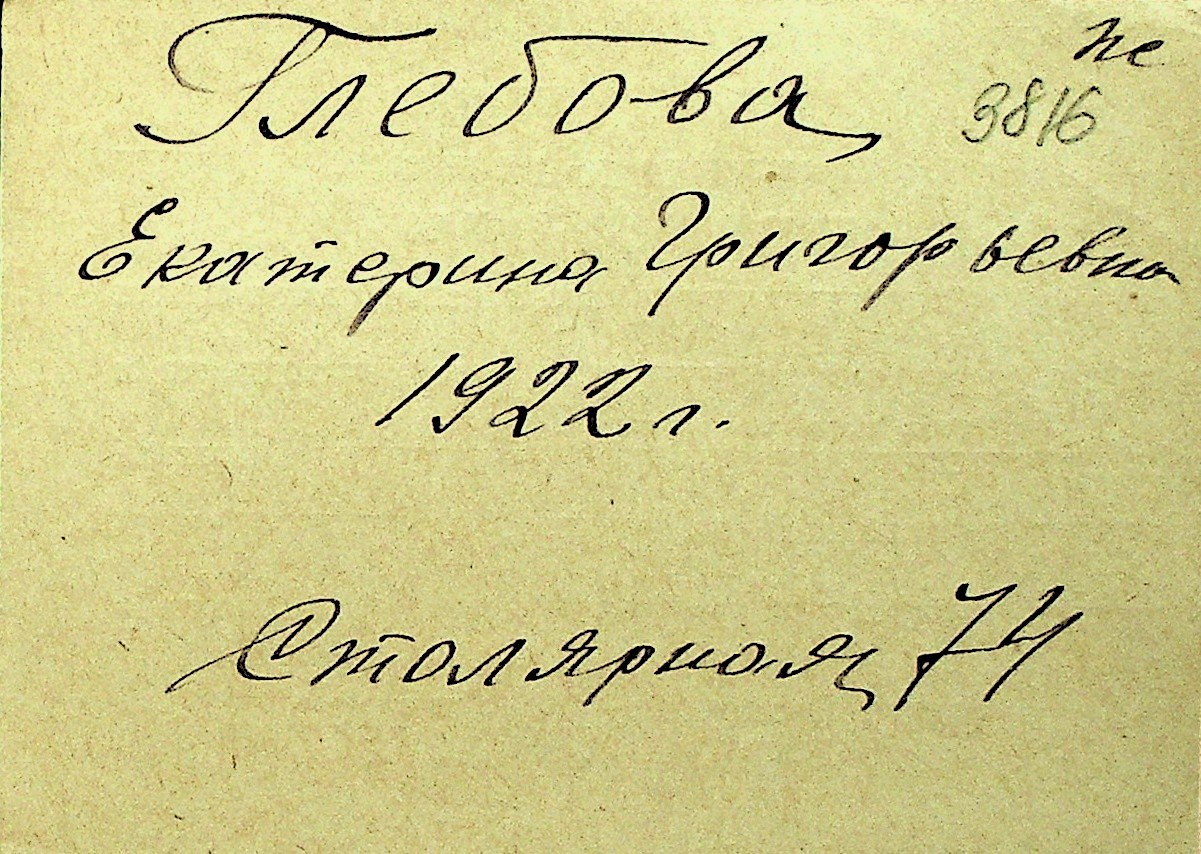 Глебова
не
3816
Екатерина Григорьевна
1922 г.
Столярная 74